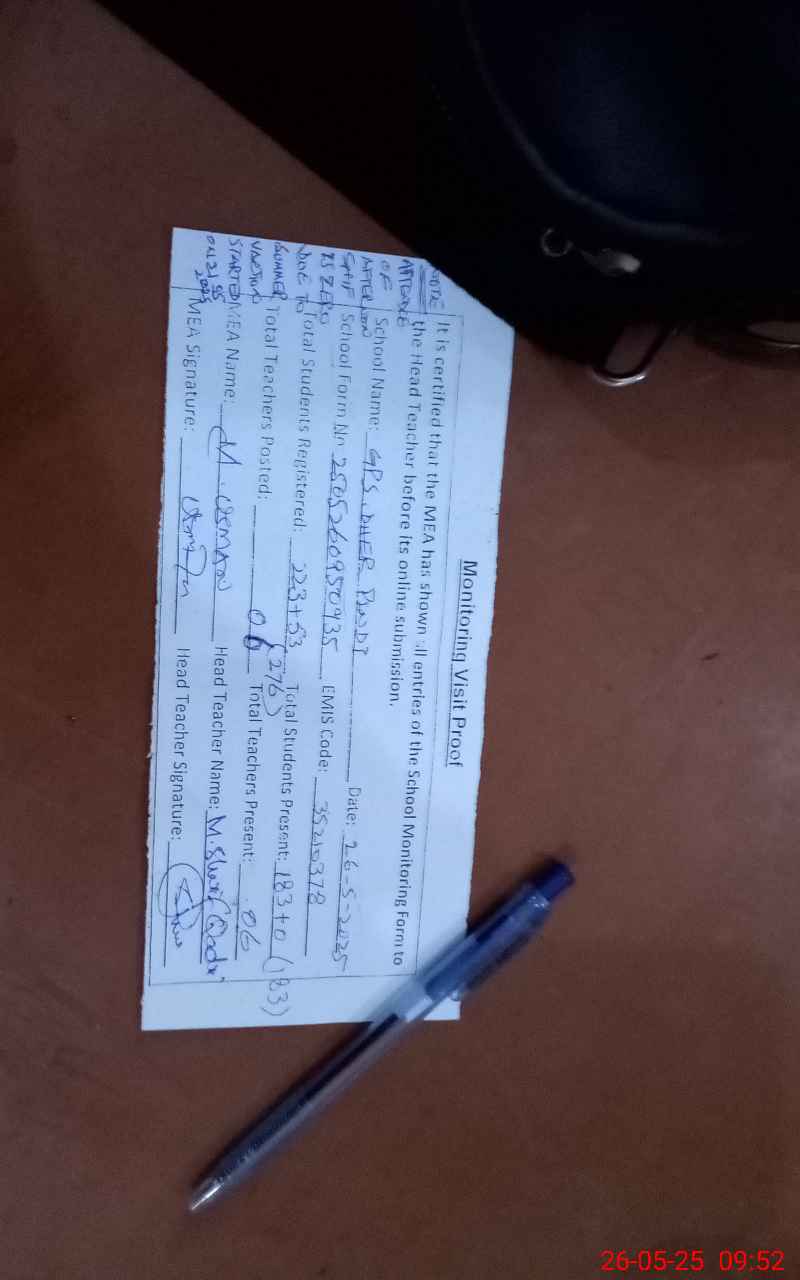 Monitoring Visit Proof
It is certified that the MEA has shown all entries of the School Monitoring Form to
the Head Teacher before its online submission.
School Name: GPS. DHER PINDI Date: 26-5-2025
School Form No 2505260950935 EMIS Code: 35210378
Total Students Registered: 223+53 (276) Total Students Present: 183+0 (183)
Total Teachers Posted: 06 Total Teachers Present: 06
MEA Name: M. USMAN Head Teacher Name: M. Sharif Qadri
MEA Signature: Head Teacher Signature:
NOTE
OF
AFTER NOON
IS ZERO
DUE TO
SUMMER
STARTED
2025
26-05-25 09:52